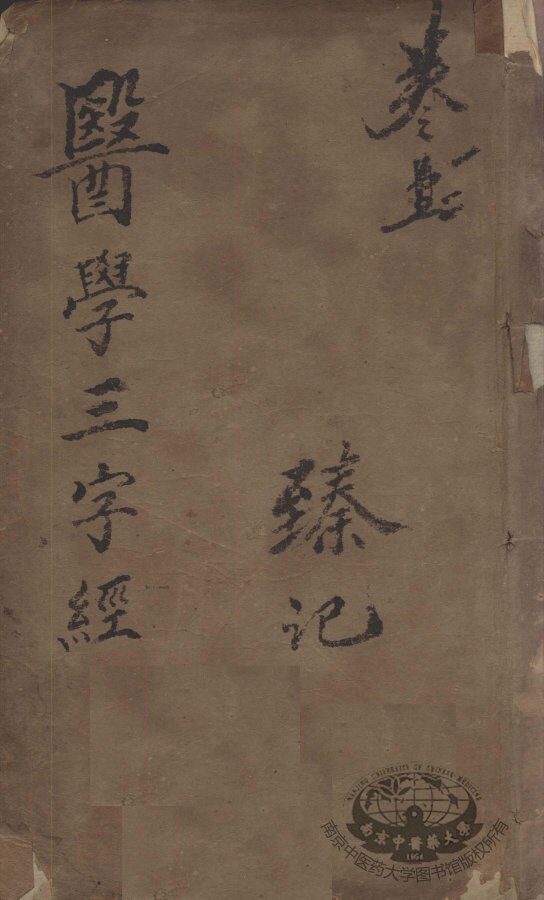 卷
臻记
醫學三字經
NANJING UNIVERSITY OF CHINESE MEDICINE
南京中醫藥大學
1954
南京中医药大学图书馆版权所有